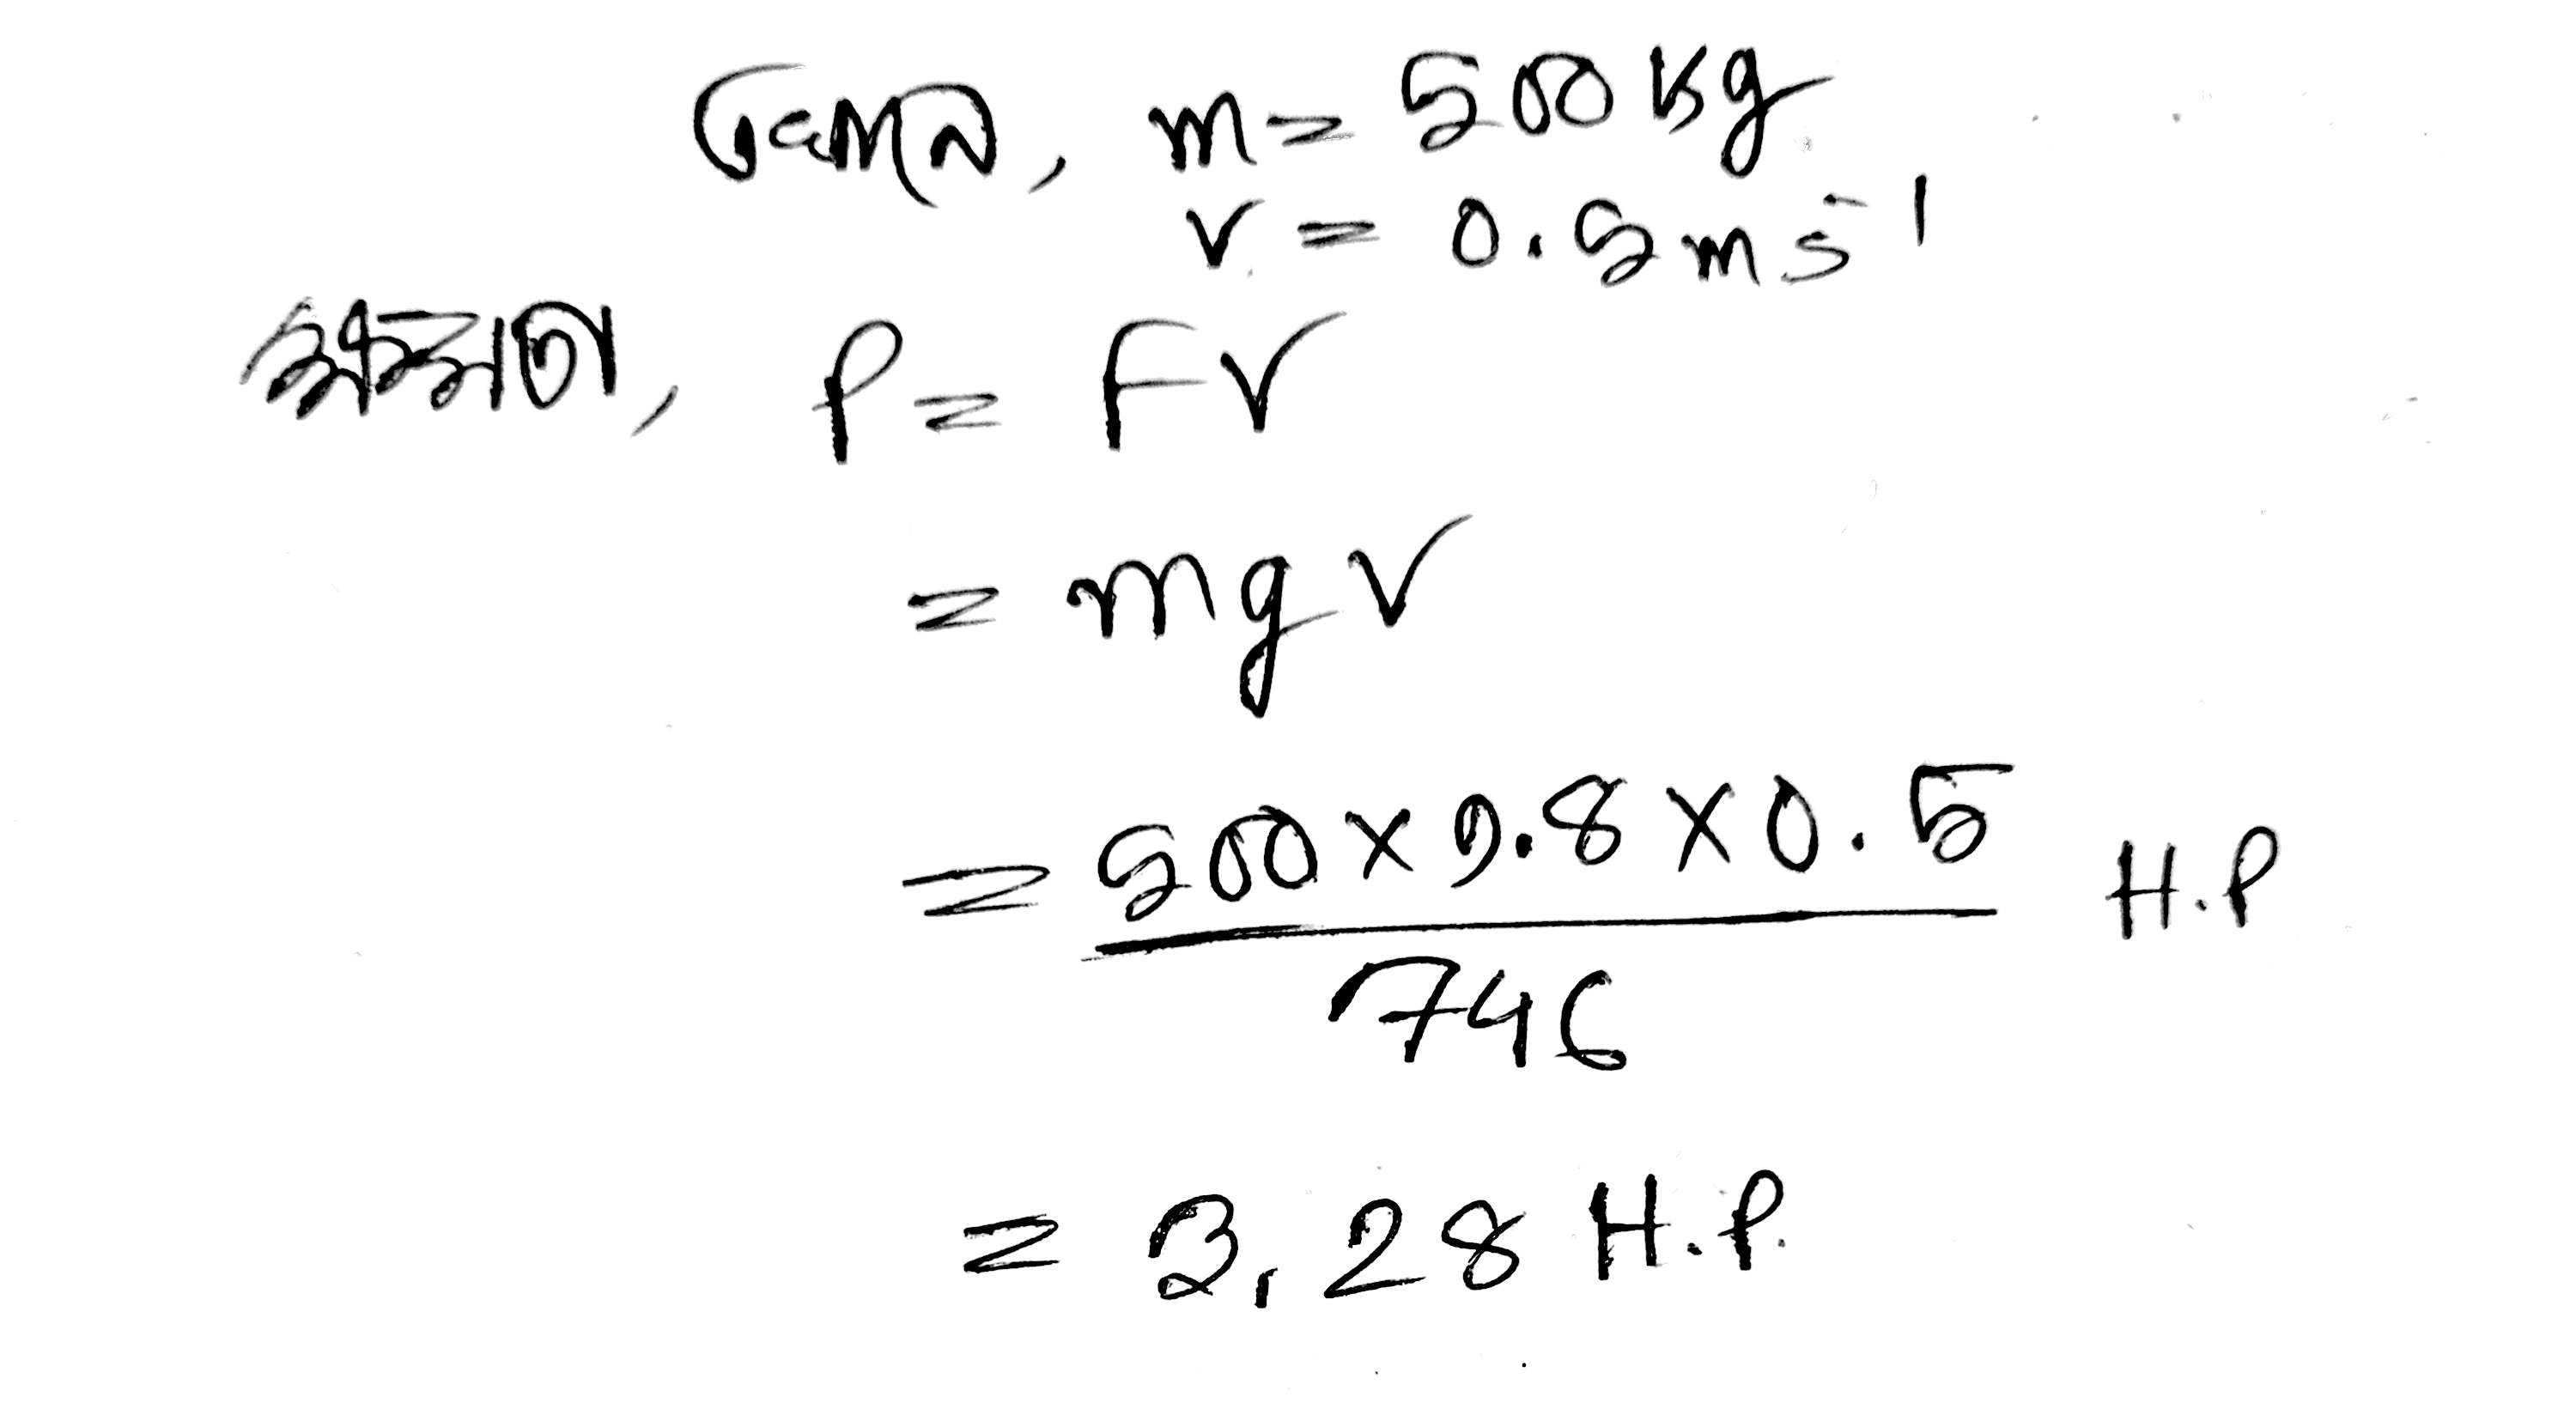 এখানে, m = 500 kg
v = 0.5 ms⁻¹
ক্ষমতা, P = Fv
= mgv
= 500 × 9.8 × 0.5 / 746 H.P
= 3.28 H.P.